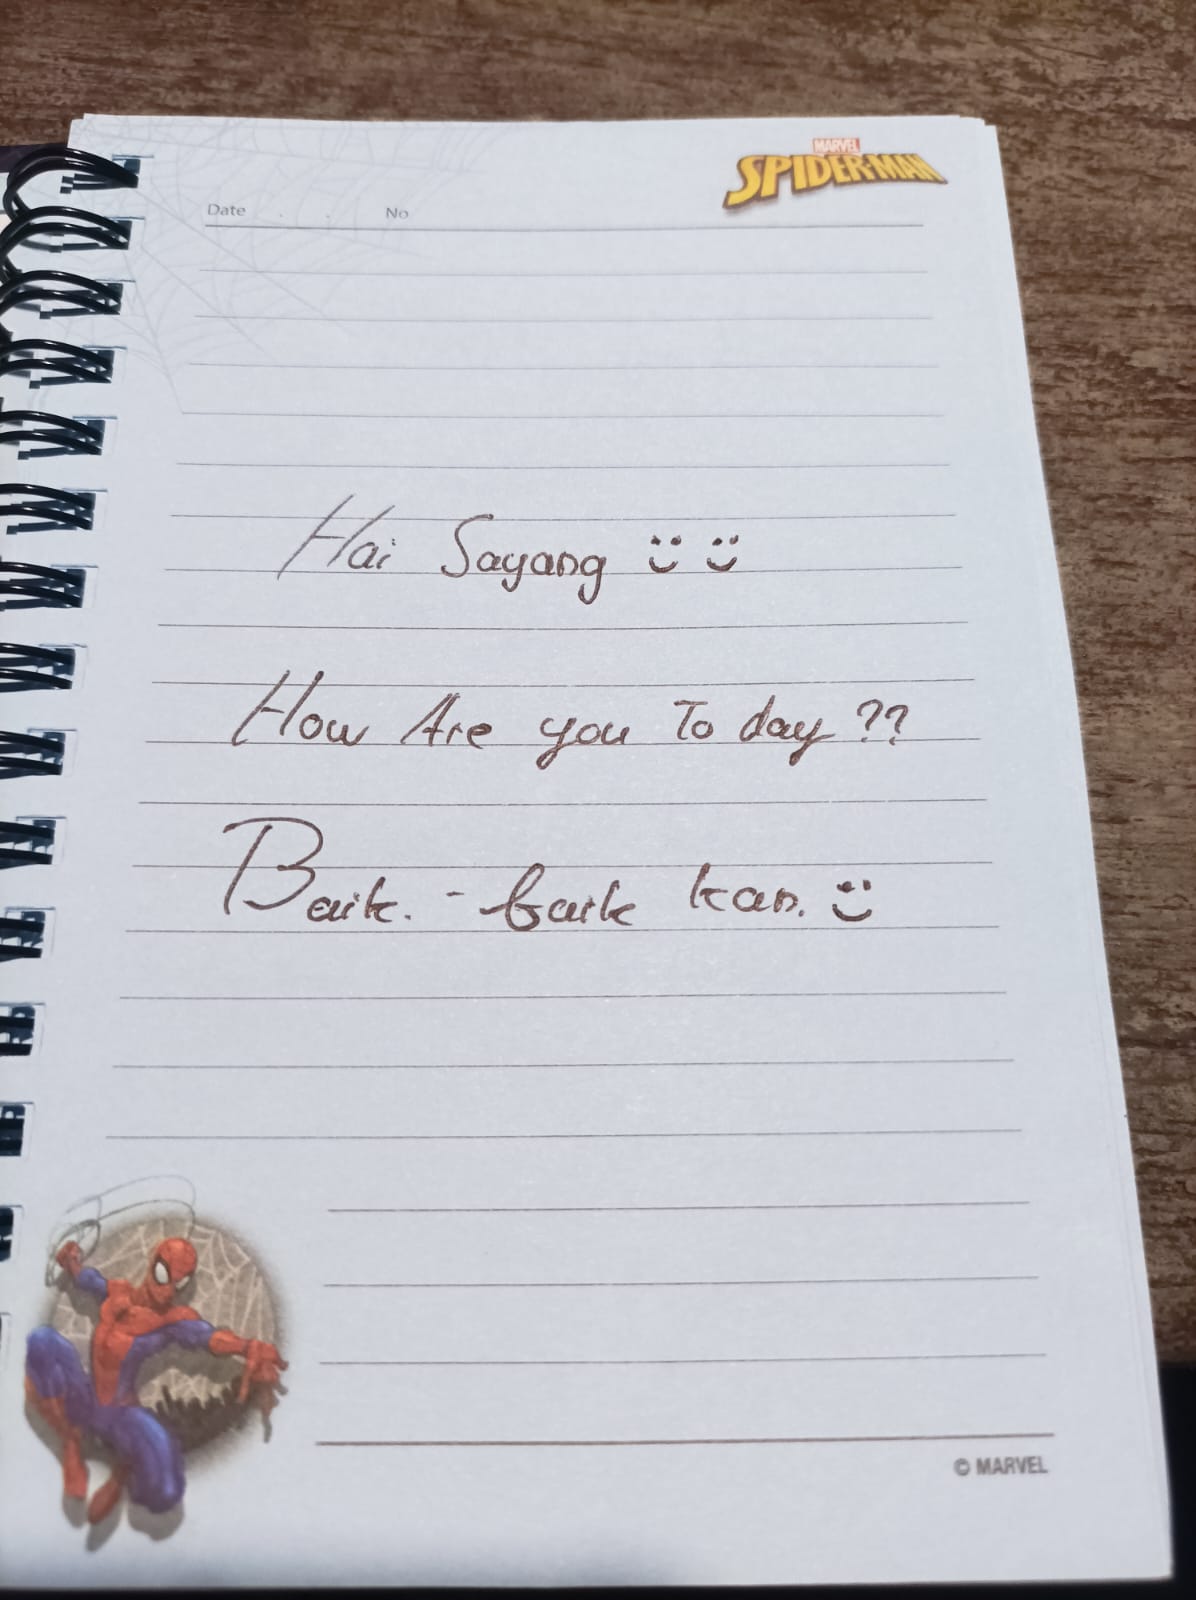 MARVEL
SPIDER-MAN
Date . . No
Hai Sayang
How Are you To day ??
Baik. - baik kan.
© MARVEL